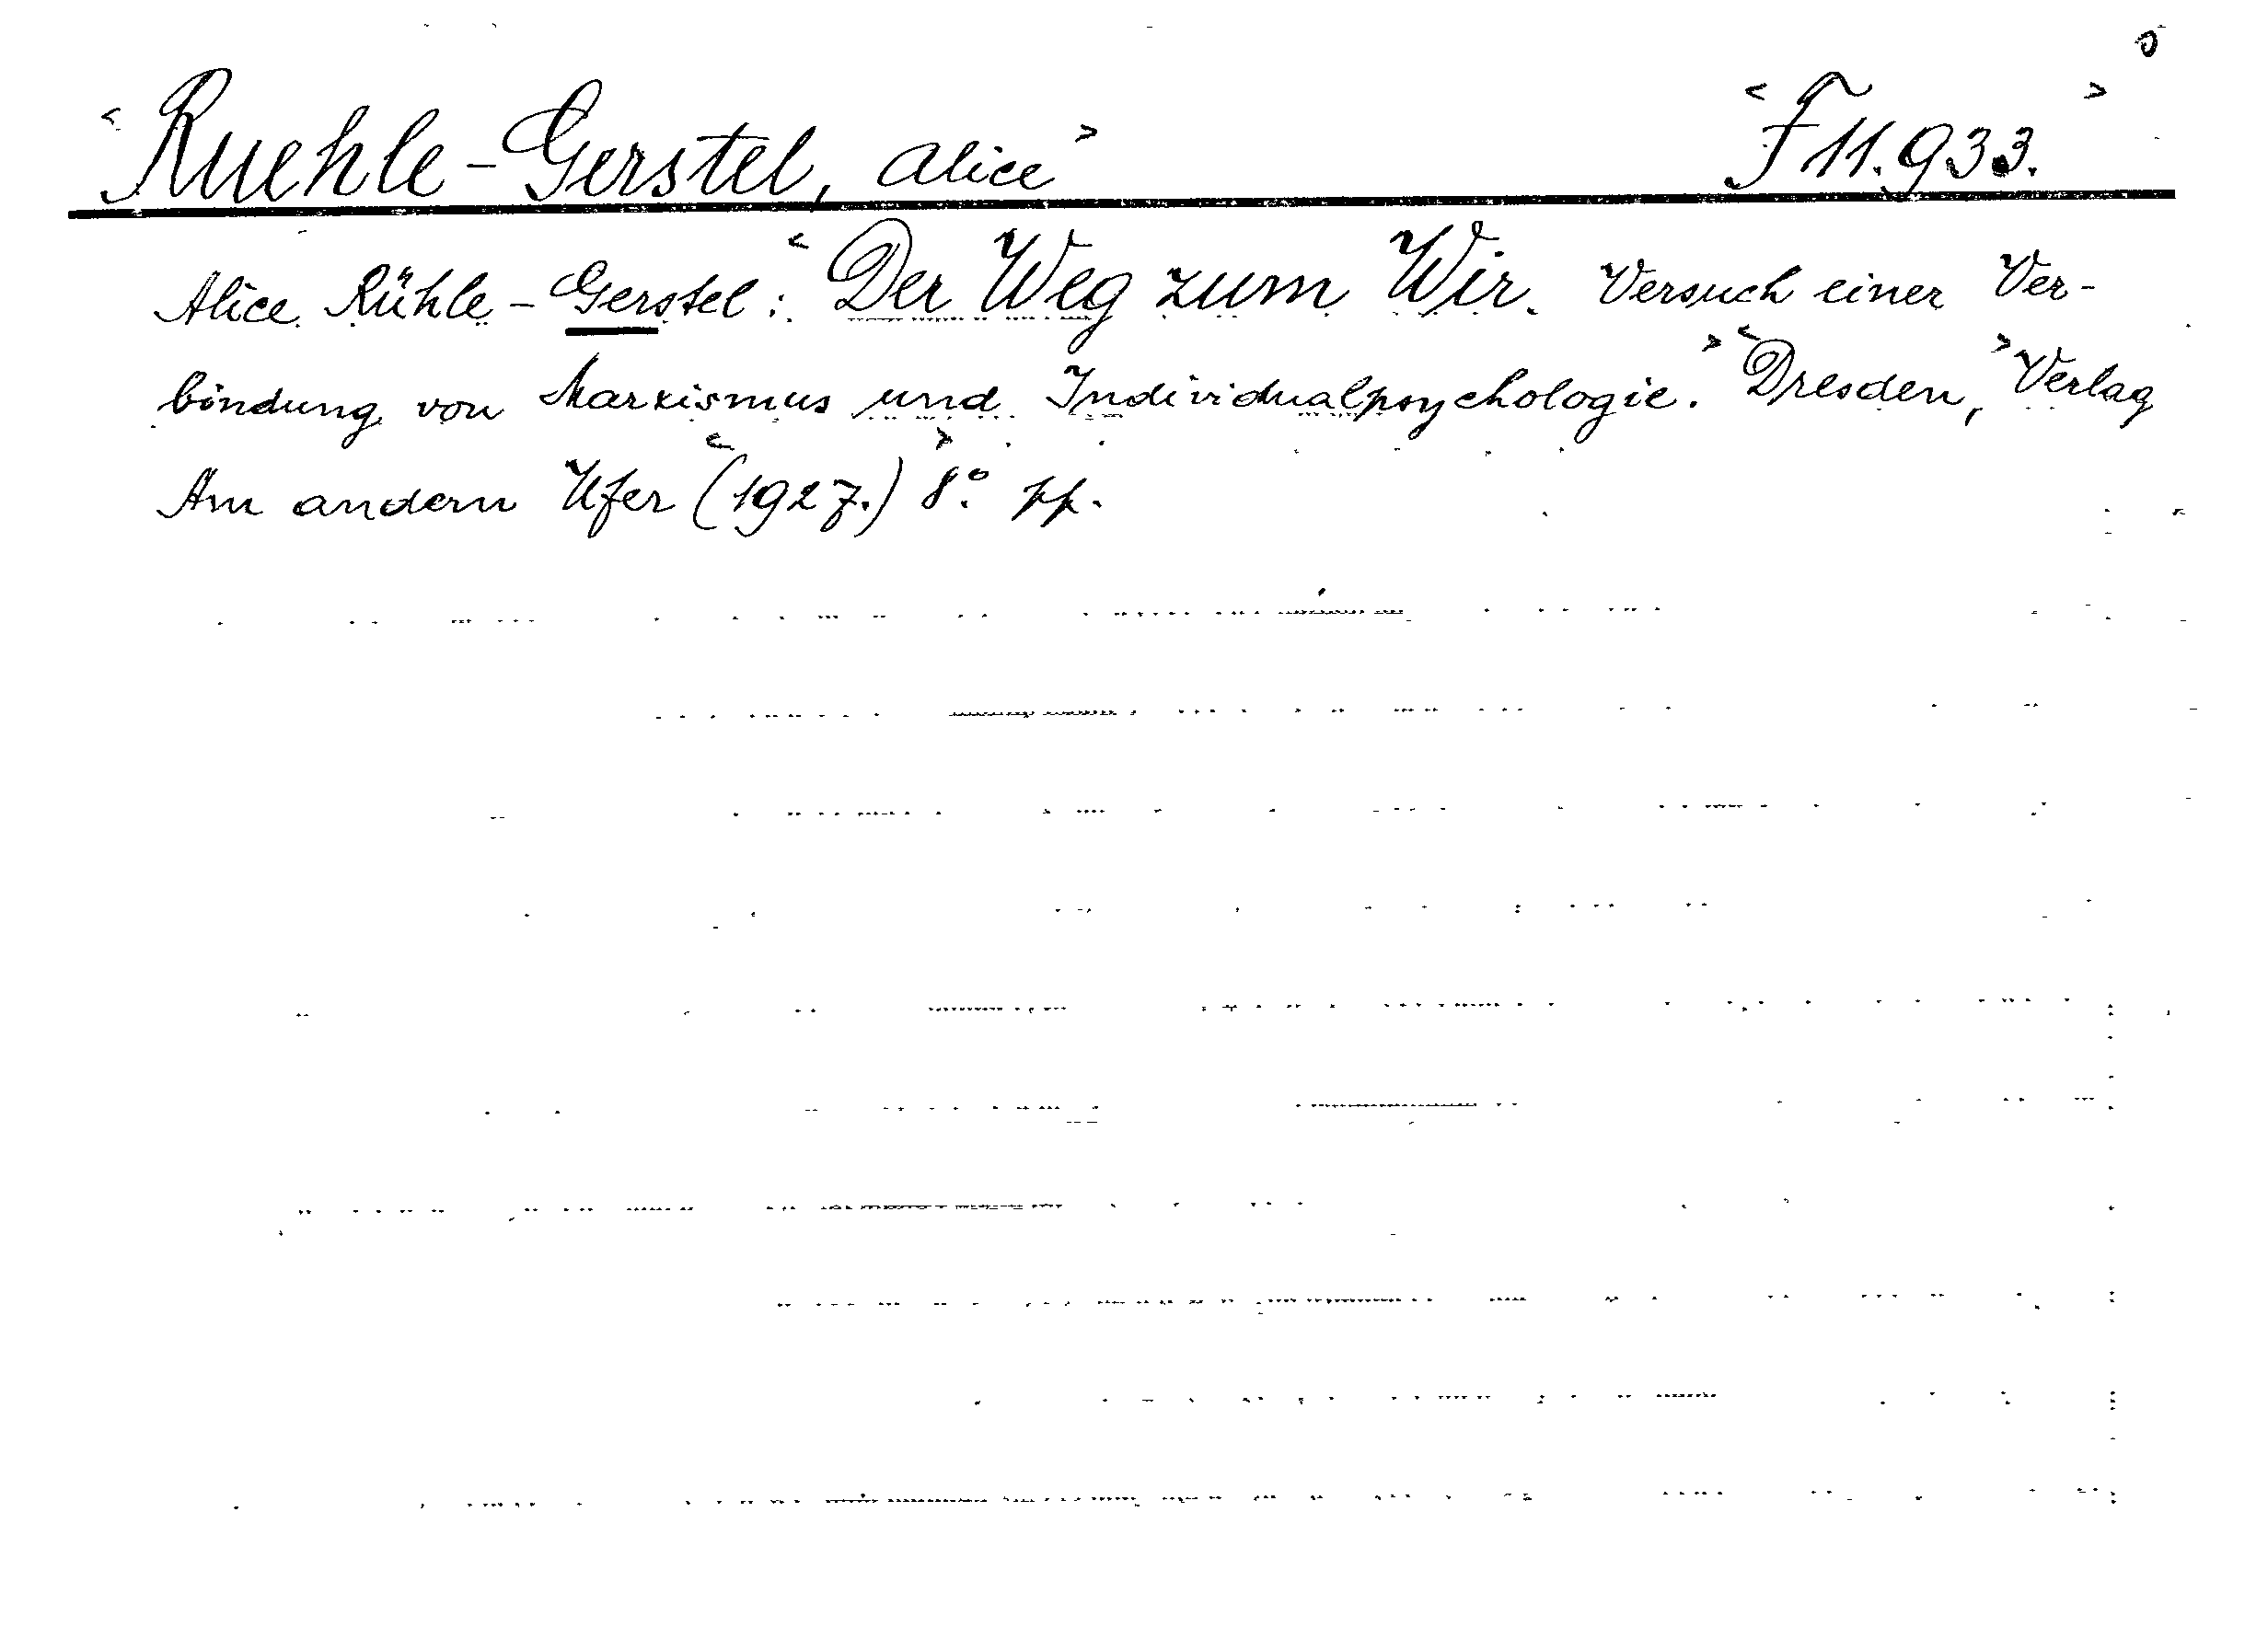 <Ruehle-Gerstel, Alice> <F 11.933.>
Alice Rühle-Gerstel: <Der Weg zum Wir. Versuch einer Ver-
bindung von Marxismus und Individualpsychologie.> <Dresden,> Verlag
Am andern Ufer <(1927.)> 8° pp.